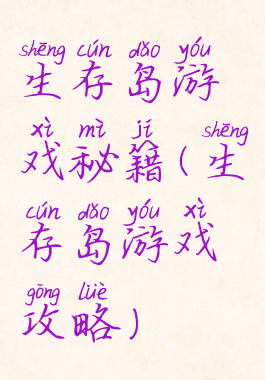 shēng cún dǎo yóu
生存岛游
xì mì jí shēng
戏秘籍(生
cún dǎo yóu xì
存岛游戏
gōng lüè
攻略)